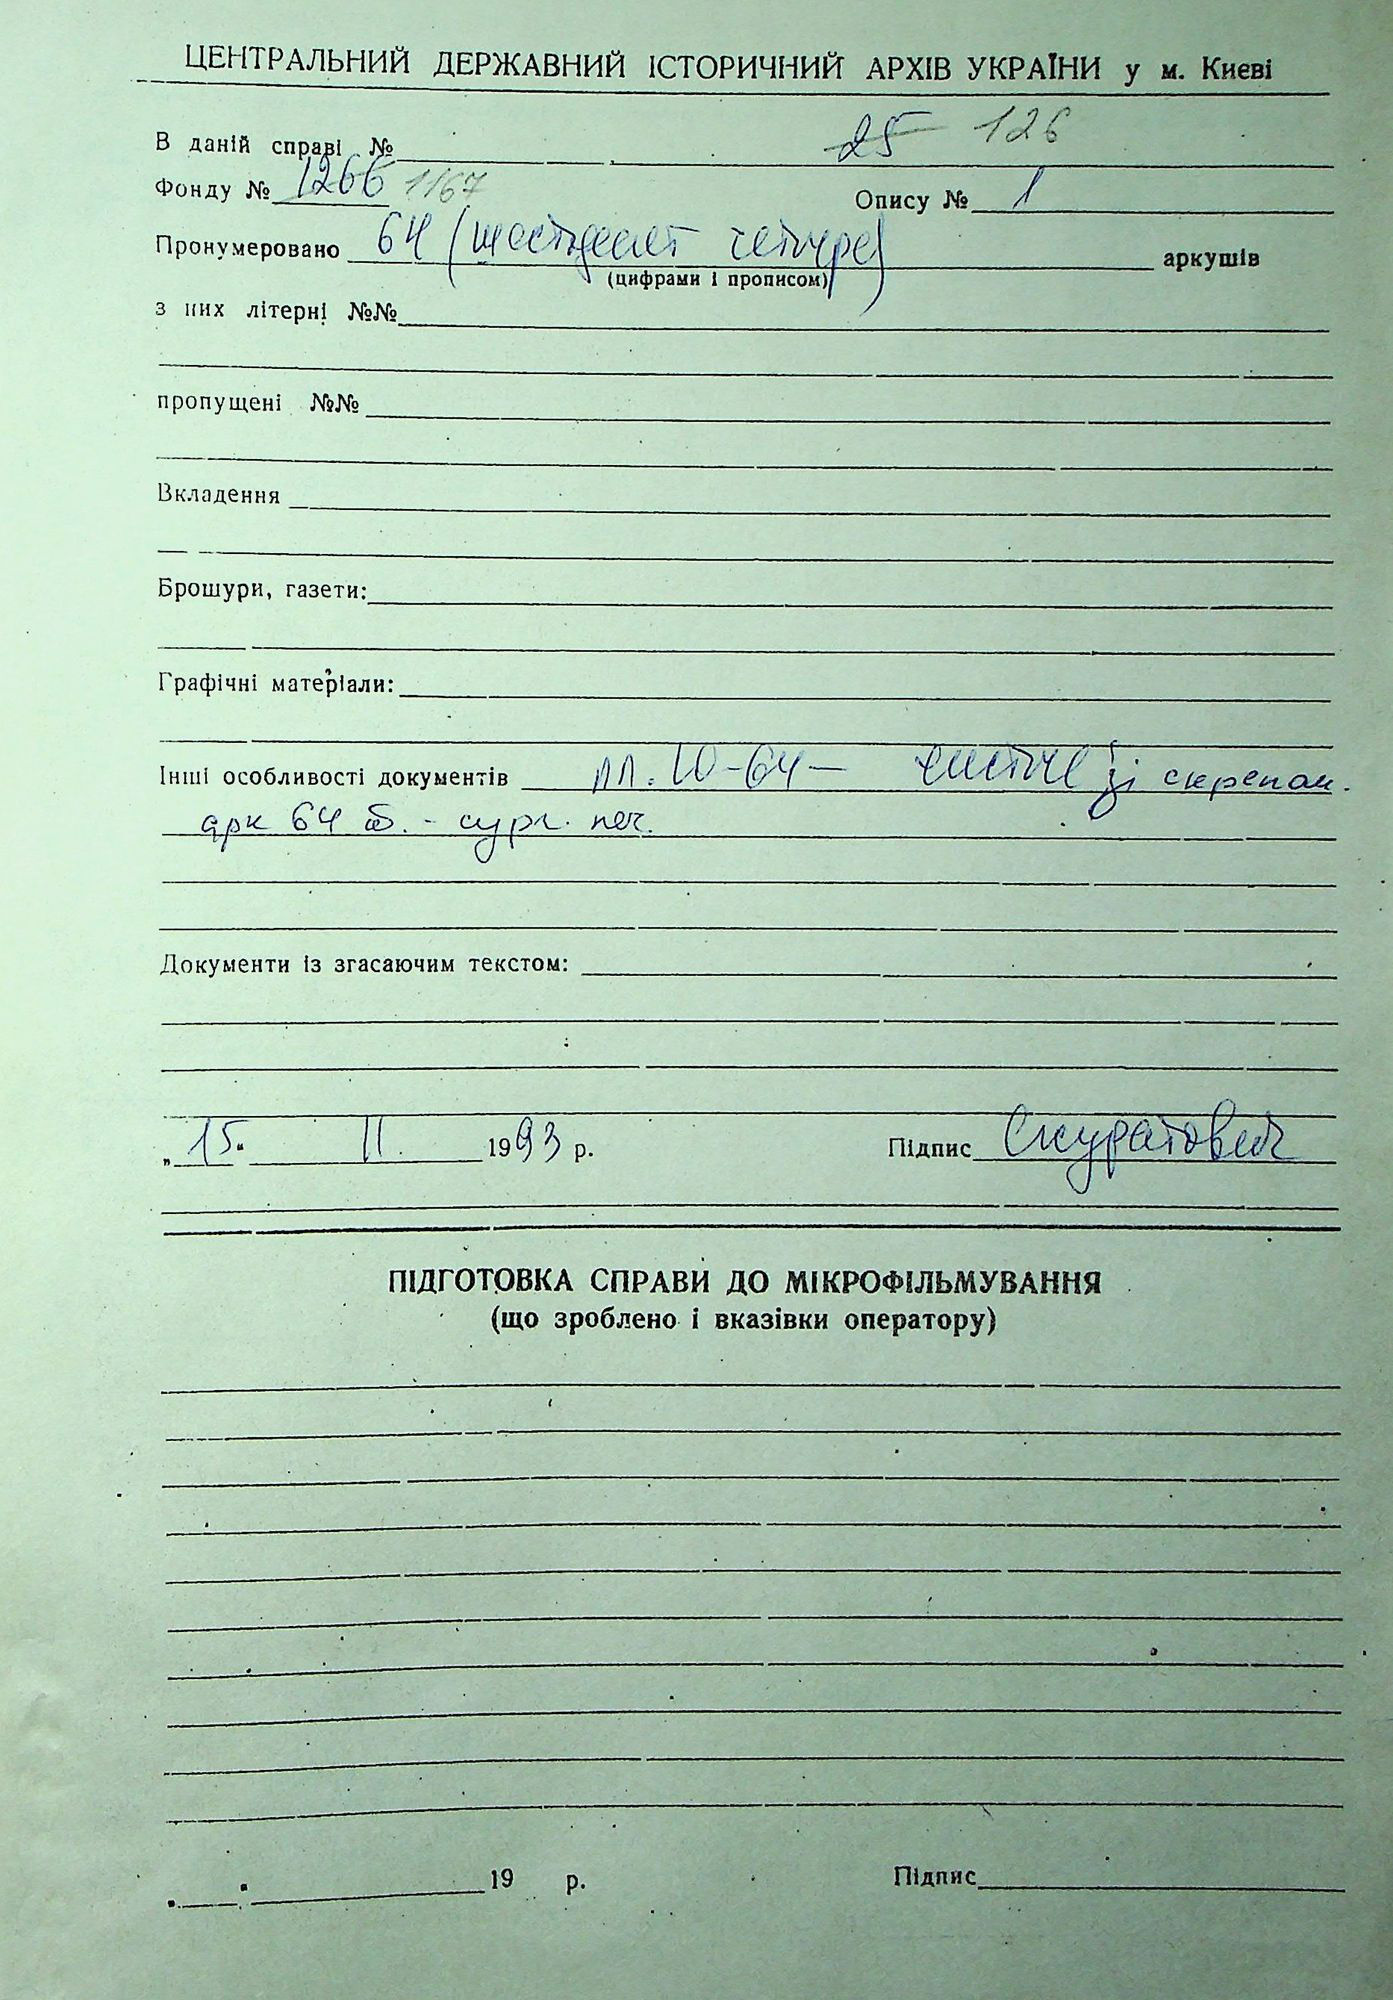 ЦЕНТРАЛЬНИЙ ДЕРЖАВНИЙ ІСТОРИЧНИЙ АРХІВ УКРАЇНИ у м. Києві
В даній справі № 25 126
Фонду № 1266 1167 Опису № 1
Пронумеровано 64 (шестдесят четыре) аркушів
(цифрами і прописом)
з них літерні №№
пропущені №№
Вкладення
Брошури, газети:
Графічні матеріали:
Інші особливості документів лл. 10-64 - зі скрепам.
арк 64 - сург. печ.
Документи із згасаючим текстом:
„15" II. 1993 р. Підпис Скуратович
ПІДГОТОВКА СПРАВИ ДО МІКРОФІЛЬМУВАННЯ
(що зроблено і вказівки оператору)
19 р. Підпис